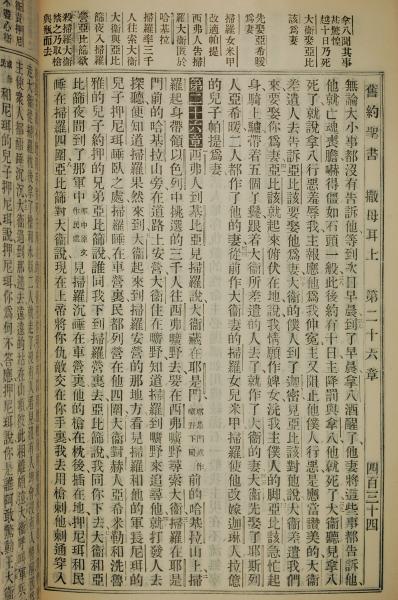 舊約聖書 撒母耳上 第二十六章 四百三十四
拿八聞其事
該為妻
先娶亞希暖
為妻
掃羅女米甲
改適帕提
西弗人告掃
羅大衛匿於
哈基拉
掃羅率三千
人往索大衛
大衛與亞比
篩夜入掃羅
營亞比篩欲
殺掃羅大衛
禁之乃取槍
與瓶而去
無論大小事都沒有告訴他等到次日早晨到了早晨拿八酒醒了他妻將這些事都告訴他
他就亡魂喪膽嚇得僵如石頭一般此後約有十日主降罰與拿八他就死了大衛聽見拿八
死了就說拿八行惡羞辱我主報應他爲我伸冤主又阻止他僕人行惡是應當讚美的大衛
差遣人去告訴亞比該要娶他爲妻大衛的僕人到了迦密見亞比該對他說大衛差遣我們
來要娶你爲妻亞比該就起來俯伏在地說我情願作婢女洗我主僕人的脚亞比該急忙起
身騎上驢帶着五個丫鬟跟着大衛所差遣的人去了就作了大衛的妻大衛先娶了耶斯列
人亞希暖二人都作了他的妻從前作大衛妻的掃羅女兒米甲掃羅使他改嫁迦琳人拉億
的兒子帕提爲妻
第二十六章西弗人到基比亞見掃羅說大衛藏在耶是門前的哈基拉山上掃
羅起身帶領以色列中挑選的三千人往西弗曠野去要在西弗曠野尋索大衛掃羅在耶是
門前的哈基拉山旁在道路上安營大衛住在曠野知道掃羅到曠野來追尋他就打發人去
探聽便知道掃羅果然來到大衛起來到掃羅安營的那地方看見掃羅和他的軍長尼珥的
兒子押尼珥睡臥之處掃羅睡在車營裏民都列營在他四圍大衛對赫人亞希米勒和洗魯
雅的兒子約押的兄弟亞比篩說誰同我下到掃羅營裏去亞比篩說我同你下去大衛和亞
比篩夜間到了那軍中見掃羅沉睡在車營裏他的槍在枕後插在地押尼珥和民
睡在掃羅四圍亞比篩對大衛說現在上帝將你仇敵交在你手裏我去用槍刺他刺通穿入